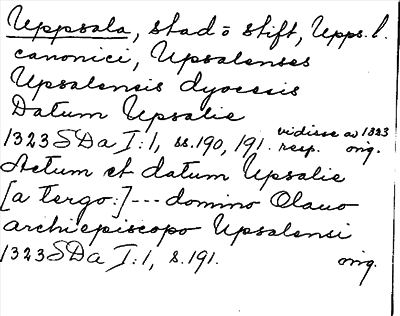 Uppsala, stad o stift, Upps. l.
canonici, Upsalenses
Upsalensis dyocesis
Datum Upsalie
1323 SDa I:1, ss. 190, 191. vidisse av 1323 resp. orig.
Actum et datum Upsalie
[a tergo:] --- domino Olauo
archiepiscopo Upsalensi
1323 SDa I:1, s. 191. orig.